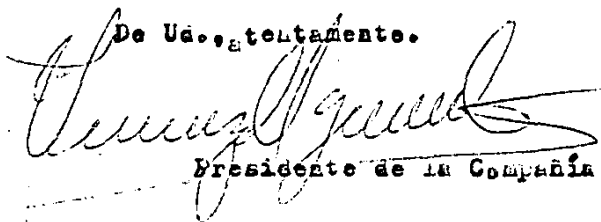 De Ud., atentamente.
Presidente de la Compañía